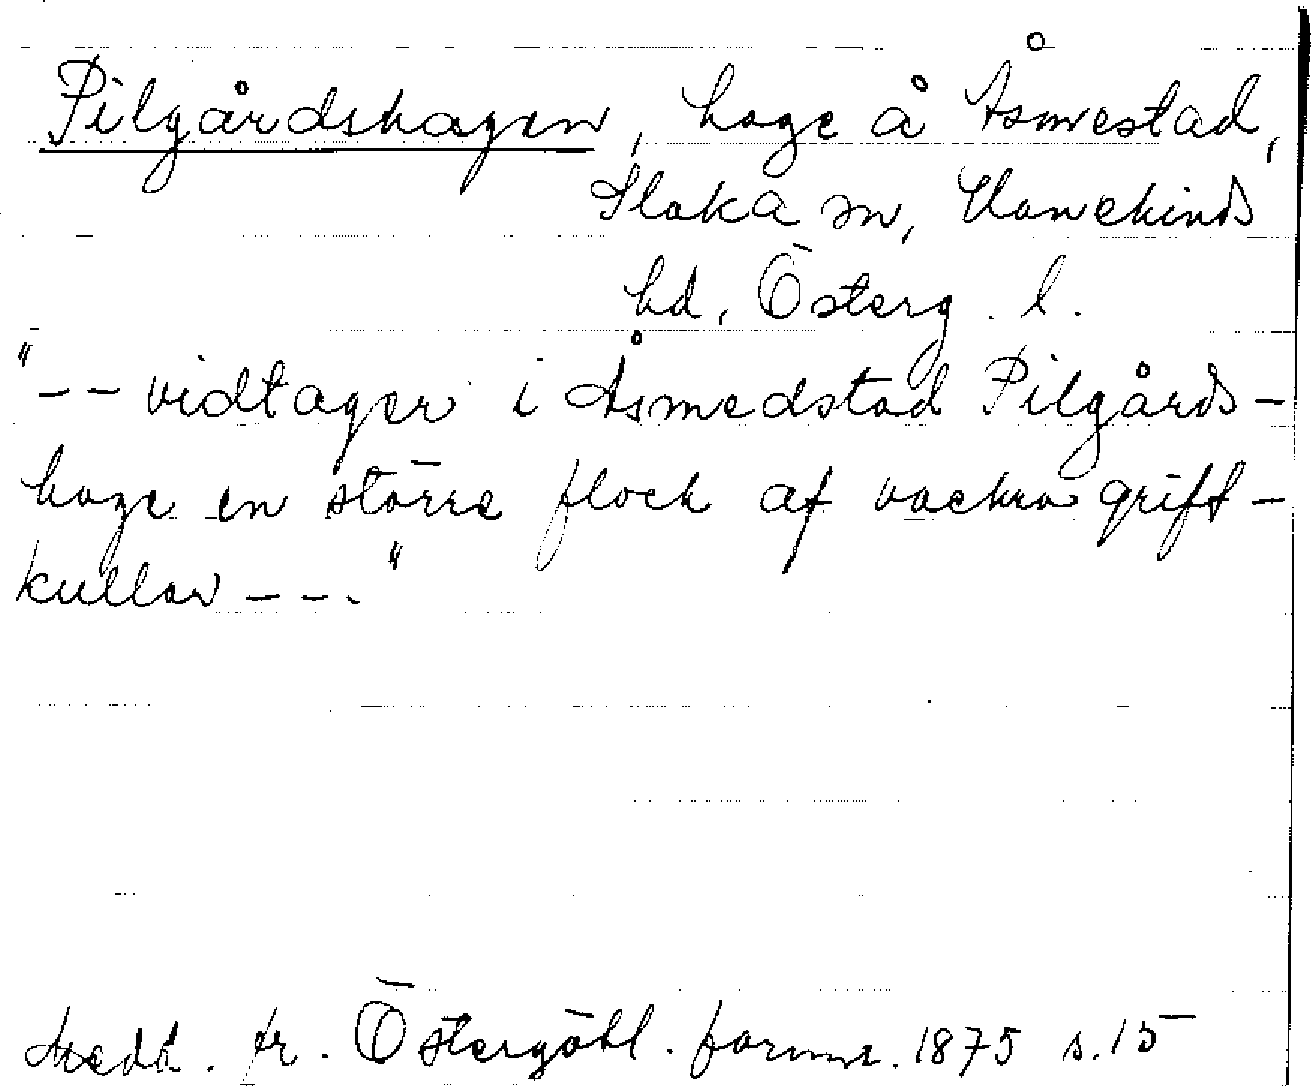 Pilgårdshagen, hage å Åsmestad,
Slaka sn, Hanekinds
hd, Österg. l.
"-- vidtager i Åsmedstad Pilgårds-
hage en större flock af vackra grift-
kullar ---."
Medd. fr. Östergötl. fornm. 1875 s. 15